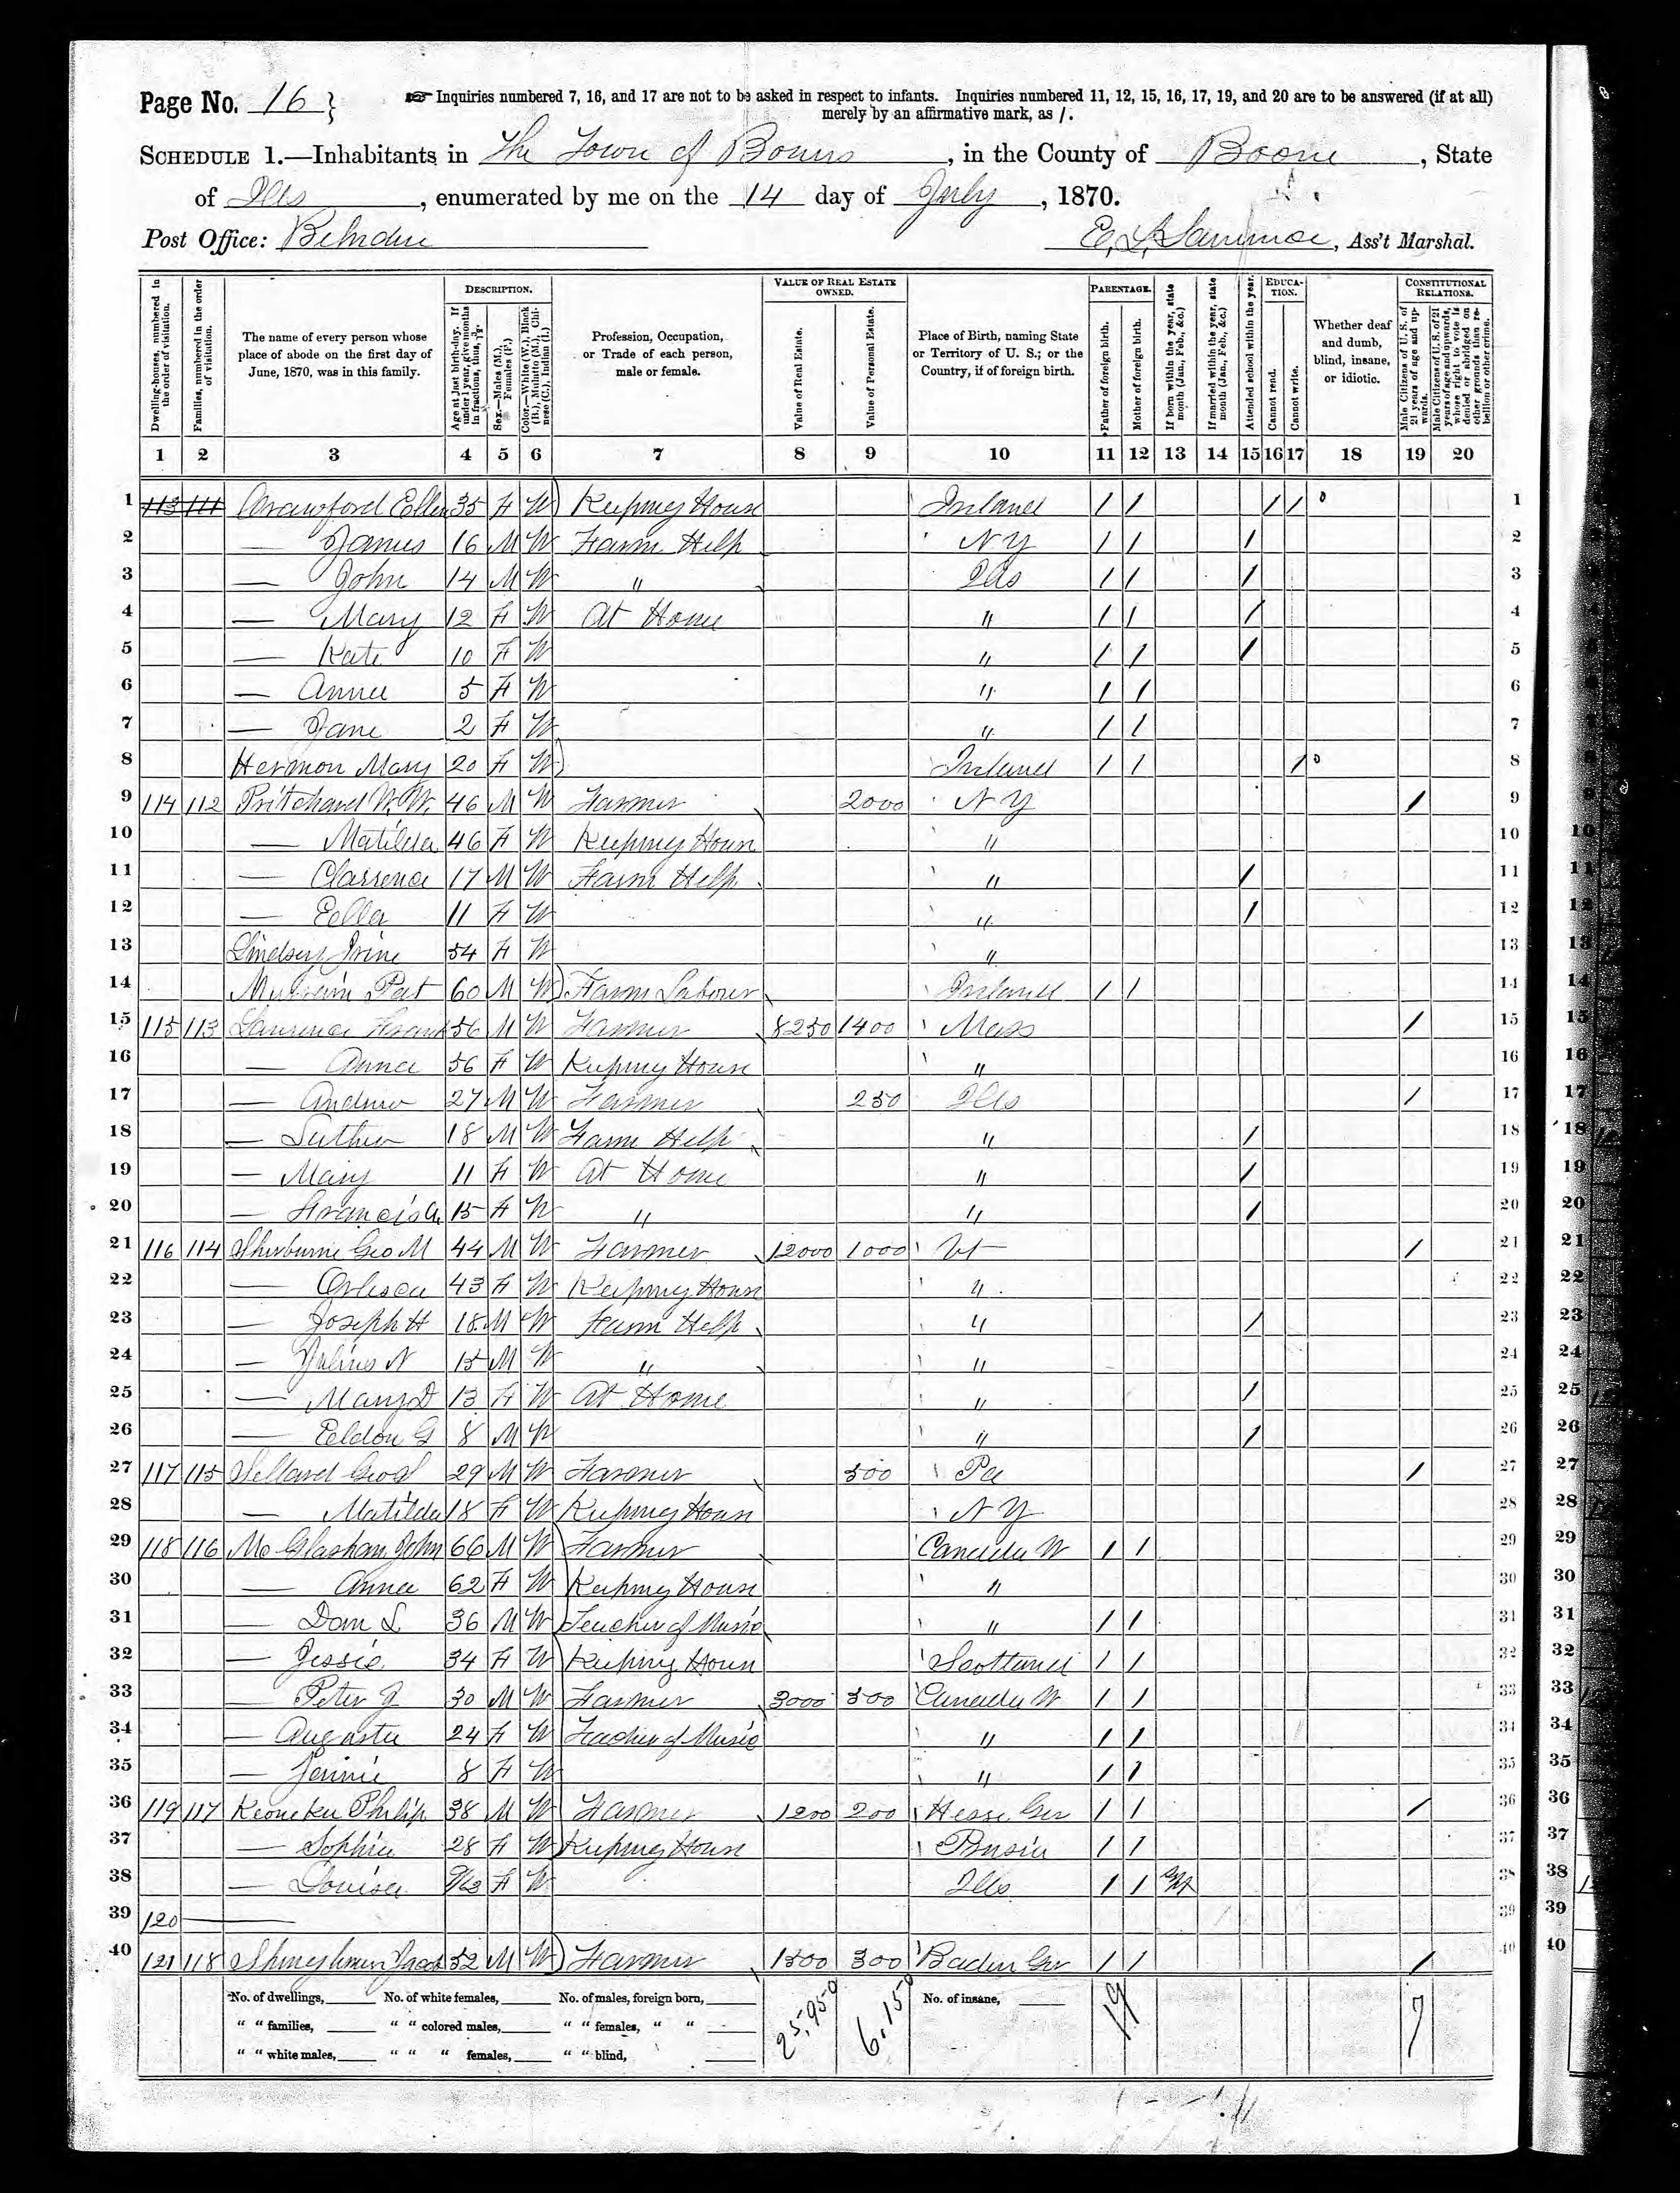 Page No. 16 }
☞ Inquiries numbered 7, 16, and 17 are not to be asked in respect to infants. Inquiries numbered 11, 12, 15, 16, 17, 19, and 20 are to be answered (if at all)
merely by an affirmative mark, as /.
SCHEDULE 1.—Inhabitants in The Town of, in the County of Boone, State
of Ills, enumerated by me on the 14 day of July, 1870.
Post Office:, Ass't Marshal.
Dwelling-houses, numbered in the order of visitation.
Families, numbered in the order of visitation.
The name of every person whose place of abode on the first day of June, 1870, was in this family.
DESCRIPTION.
Age at last birth-day. If under 1 year, give months in fractions, thus,
Sex.—Males (M.), Females (F.)
Color.—White (W.), Black (B.), Mulatto (M.), Chinese (C.), Indian (I.)
Profession, Occupation, or Trade of each person, male or female.
VALUE OF REAL ESTATE OWNED.
Value of Real Estate.
Value of Personal Estate.
Place of Birth, naming State or Territory of U. S.; or the Country, if of foreign birth.
PARENTAGE.
Father of foreign birth.
Mother of foreign birth.
If born within the year, state month (Jan., Feb., &c.)
If married within the year, state month (Jan., Feb., &c.)
Attended school within the year.
EDUCATION.
Cannot read.
Cannot write.
Whether deaf and dumb, blind, insane, or idiotic.
CONSTITUTIONAL RELATIONS.
Male Citizens of U. S. of 21 years of age and upwards.
Male Citizens of U. S. of 21 years of age and upwards, whose right to vote is denied or abridged on other grounds than rebellion or other crime.
1 2 3 4 5 6 7 8 9 10 11 12 13 14 15 16 17 18 19 20
1 113 111 Crawford Ellen 35 F W Keeping House Ireland / / / / 1
2 — James 16 M W Farm Help N Y / / / 2
3 — John 14 M W " Ills / / / 3
4 — Mary 12 F W At Home " / / / 4
5 — Kate 10 F W " / / / 5
6 — Anna 5 F W " / / 6
7 — Jane 2 F W " / / 7
8 Hermon Mary 20 F W Ireland / / / 8
9 114 112 Pritchard W. W. 46 M W Farmer 2000 N Y / 9
10 — Matilda 46 F W Keeping House " 10
11 — Clarrence 17 M W Farm Help " / 11
12 — Eella 11 F W " / 12
13 Lindsey Irine 54 F W " 13
14 Pat 60 M W Farm Labourer Ireland / / 14
15 115 113 Laurence Frank 56 M W Farmer 8250 1400 Mass / 15
16 — Anna 56 F W Keeping House " 16
17 — Andrew 27 M W Farmer 250 Ills / 17
18 — Luther 18 M W Farm Help " / 18
19 — Mary 11 F W At Home " / 19
20 — Francis A. 15 F W " " / 20
21 116 114 Sherburne Geo M 44 M W Farmer 12000 1000 Vt / 21
22 — 43 F W Keeping House " 22
23 — Joseph H 18 M W Farm Help " / 23
24 — Julius N 15 M W " " 24
25 — Mary D 13 F W At Home " / 25
26 — Eeldon G 8 M W " / 26
27 117 115 Geo S 29 M W Farmer 500 Pa / 27
28 — Matilda 18 F W Keeping House N Y 28
29 118 116 Mc Glashan John 66 M W Farmer Canada W / / 29
30 — Anna 62 F W Keeping House " 30
31 — Dan L 36 M W Teacher of Music " / / 31
32 — Jessie 34 F W Keeping House Scotland / / 32
33 — Peter J 30 M W Farmer 3000 500 Canada W / / 33
34 — Augusta 24 F W Teacher of Music " / / 34
35 — Jennie 8 F W " / / 35
36 119 117 Philip 38 M W Farmer 1200 200 Hesse Ger / / / 36
37 — Sophia 28 F W Keeping House Prusia / / 37
38 — Louisa 9/12 F W Ills / / 38
39 120 — 39
40 121 118 Jacob 52 M W Farmer 1500 300 Baden Ger / / / 40
No. of dwellings, No. of white females, No. of males, foreign born, 25,950 6,150 No. of insane, 19 7
" " families, " " colored males, " " females, " "
" " white males, " " " females, " " blind,